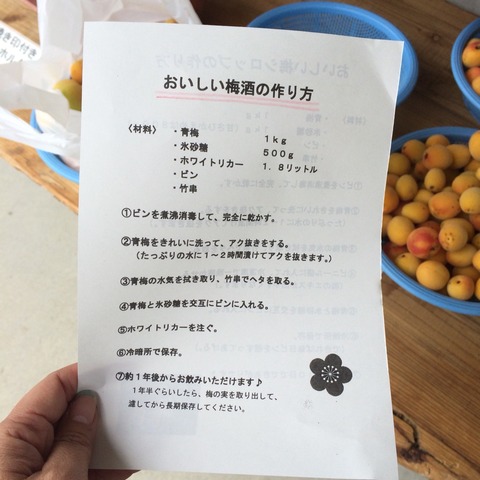 おいしい梅酒の作り方
〈材料〉
・青梅 1kg
・氷砂糖 500g
・ホワイトリカー 1.8リットル
・ビン
・竹串
①ビンを煮沸消毒して、完全に乾かす。
②青梅をきれいに洗って、アク抜きをする。
(たっぷりの水に1~2時間漬けてアクを抜きます。)
③青梅の水気を拭き取り、竹串でヘタを取る。
④青梅と氷砂糖を交互にビンに入れる。
⑤ホワイトリカーを注ぐ。
⑥冷暗所で保存。
⑦約1年後からお飲みいただけます♪
1年半ぐらいしたら、梅の実を取り出して、
濾してから長期保存してください。